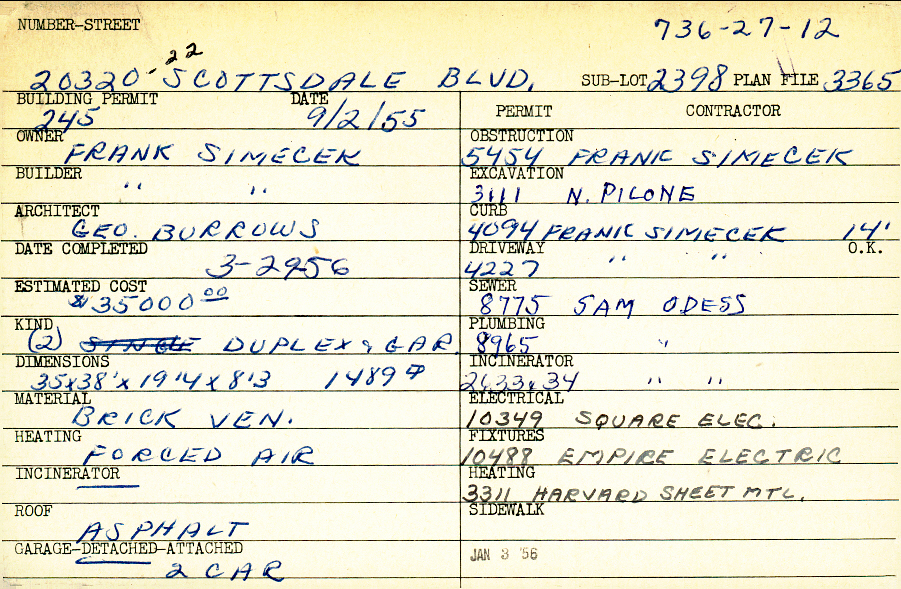 NUMBER-STREET 736-27-12
20320-22 SCOTTSDALE BLVD. SUB-LOT 2398 PLAN FILE 3365
BUILDING PERMIT DATE PERMIT CONTRACTOR
245 9/2/55
OWNER OBSTRUCTION
FRANK SIMECEK 5454 FRANK SIMECEK
BUILDER EXCAVATION
" " 3111 N. PILONE
ARCHITECT CURB
GEO. BURROWS 4094 FRANK SIMECEK 14'
DATE COMPLETED DRIVEWAY O.K.
3-2956 4227 " "
ESTIMATED COST SEWER
$35000.00 8775 SAM ODESS
KIND PLUMBING
(2) SINGLE DUPLEX & GAR. 8965 "
DIMENSIONS INCINERATOR
35x38'x19'4x8'3 1489 2633 & 34 " "
MATERIAL ELECTRICAL
BRICK VEN. 10349 SQUARE ELEC.
HEATING FIXTURES
FORCED AIR 10488 EMPIRE ELECTRIC
INCINERATOR HEATING
3311 HARVARD SHEET MTL.
ROOF SIDEWALK
ASPHALT
GARAGE-DETACHED-ATTACHED JAN 3 '56
2 CAR